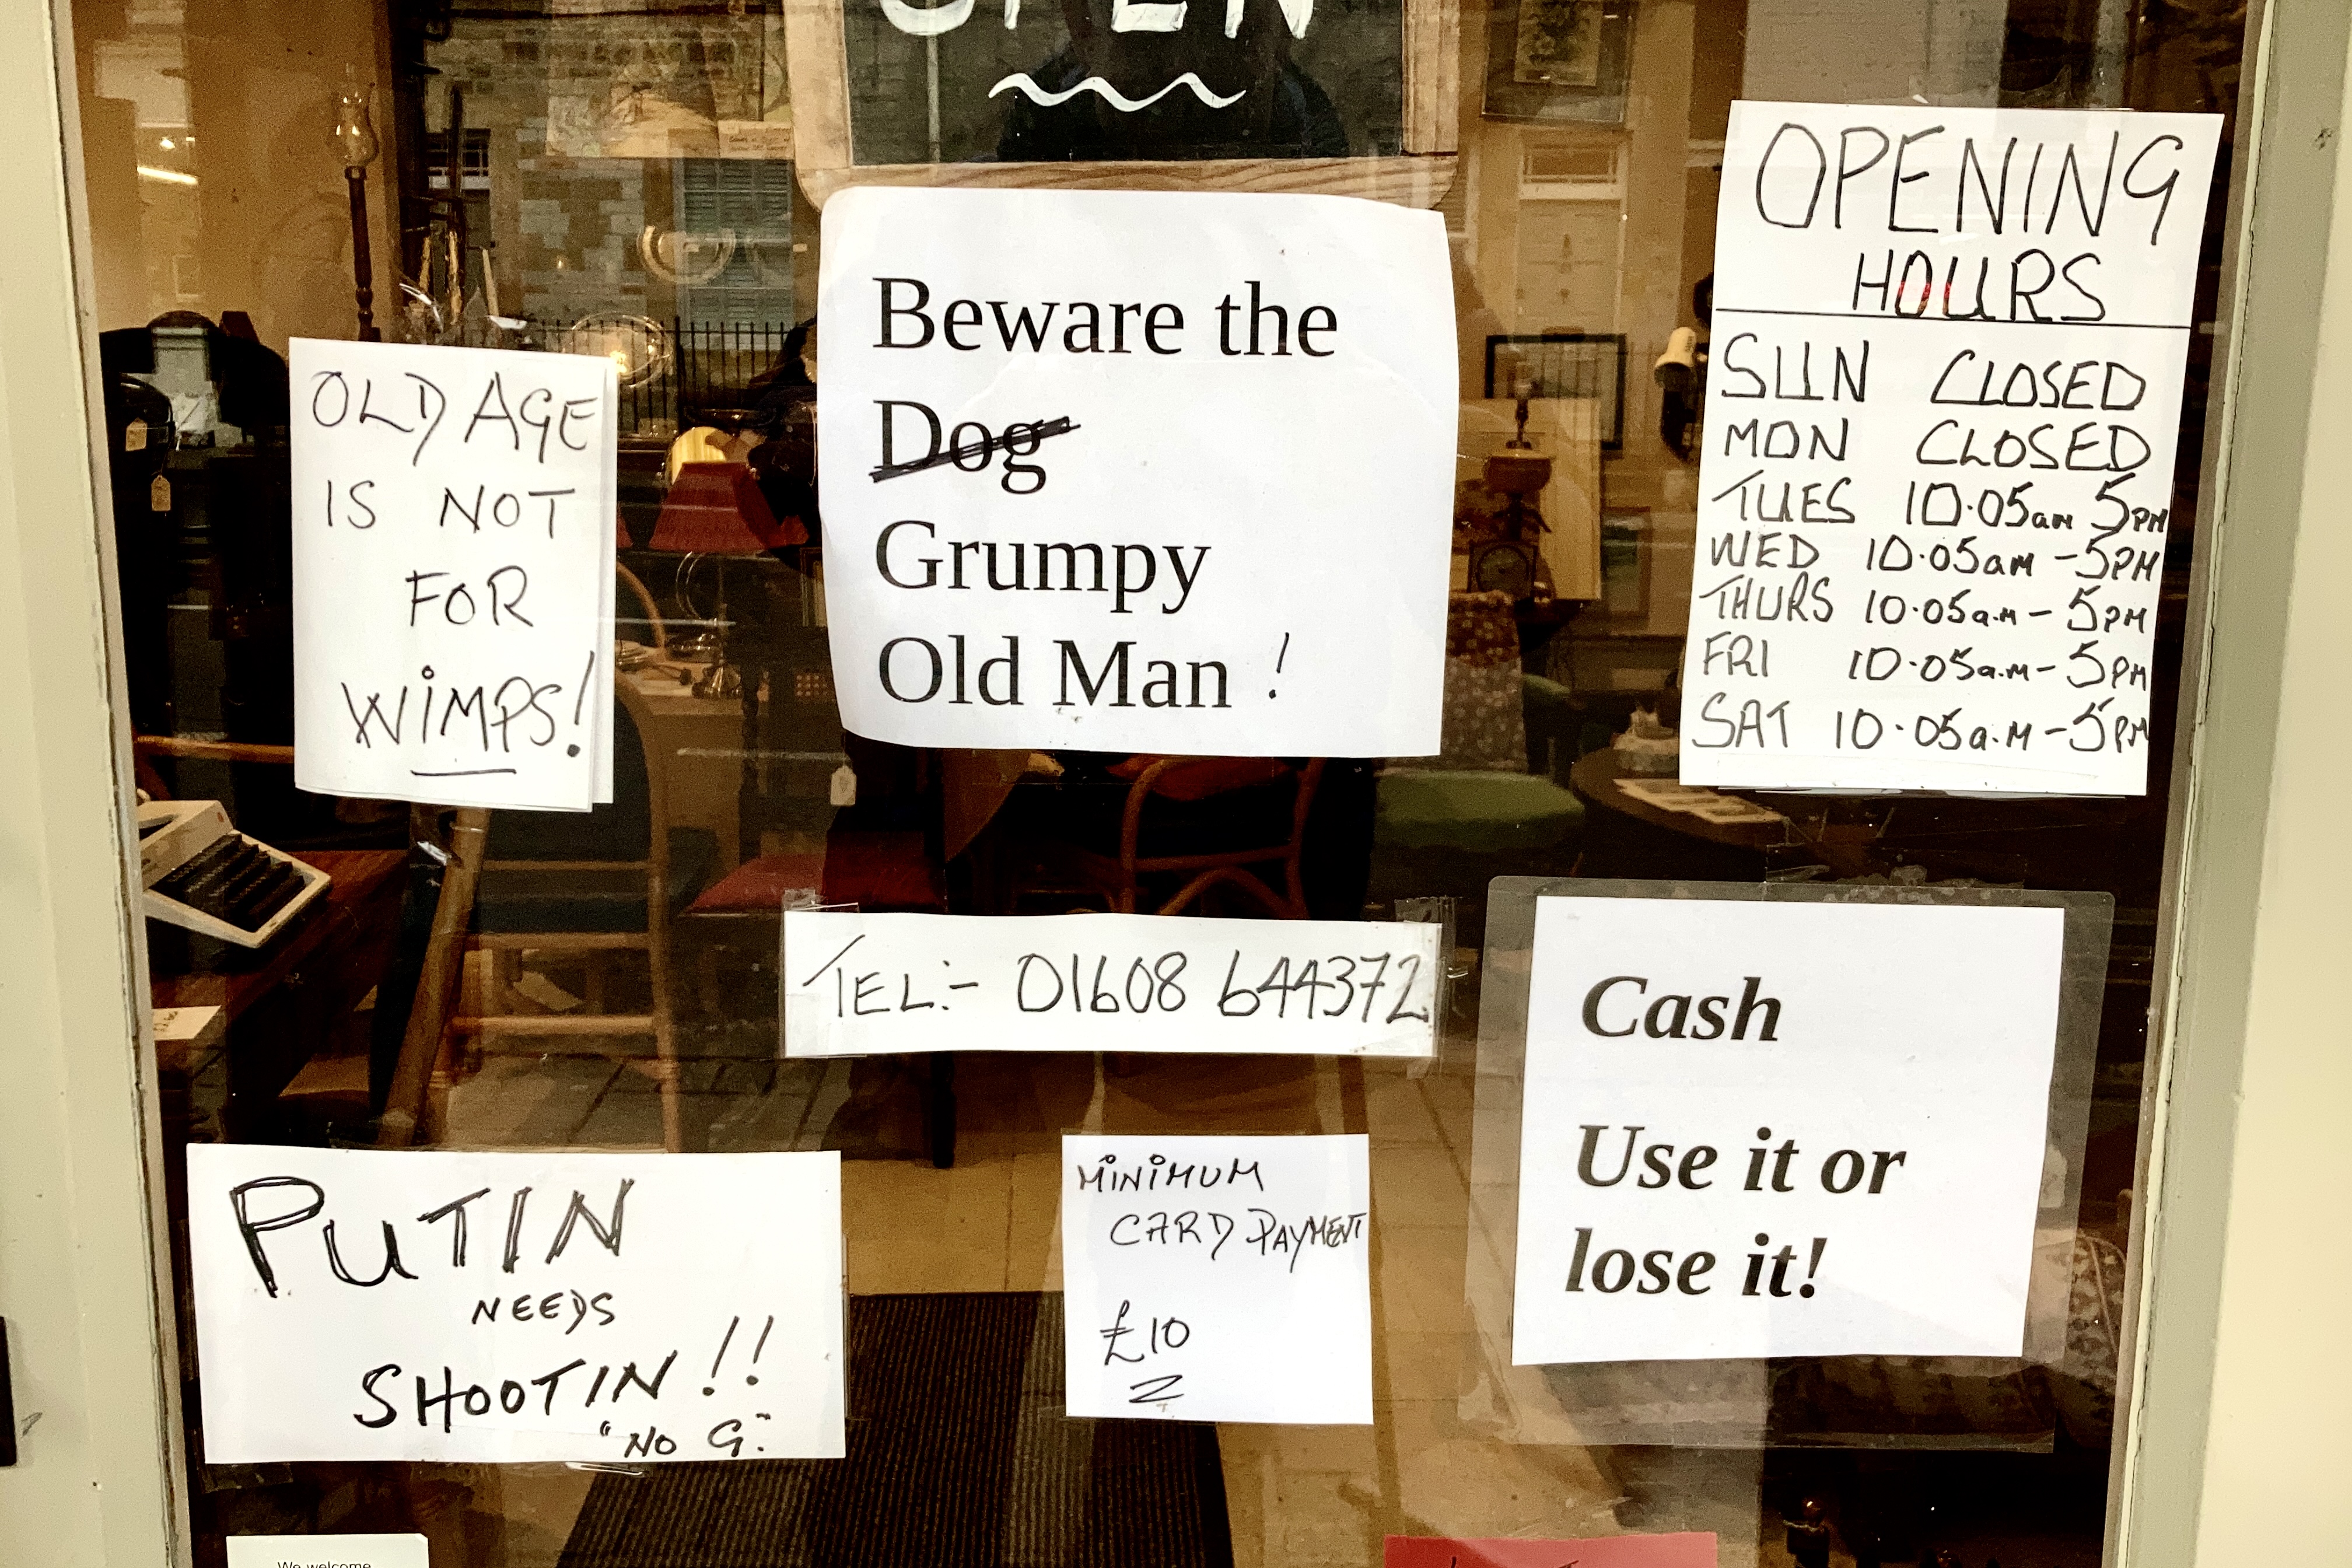 OPEN
OLD AGE
IS NOT
FOR
WIMPS!
Beware the
Dog
Grumpy
Old Man !
OPENING
HOURS
SUN CLOSED
MON CLOSED
TUES 10·05am 5PM
WED 10·05am - 5PM
THURS 10·05a.m - 5PM
FRI 10·05a.m - 5PM
SAT 10·05a.m - 5PM
TEL:- 01608 644372
Cash
Use it or
lose it!
PUTIN
NEEDS
SHOOTIN !!
"NO G."
MINIMUM
CARD PAYMENT
£10
We welcome